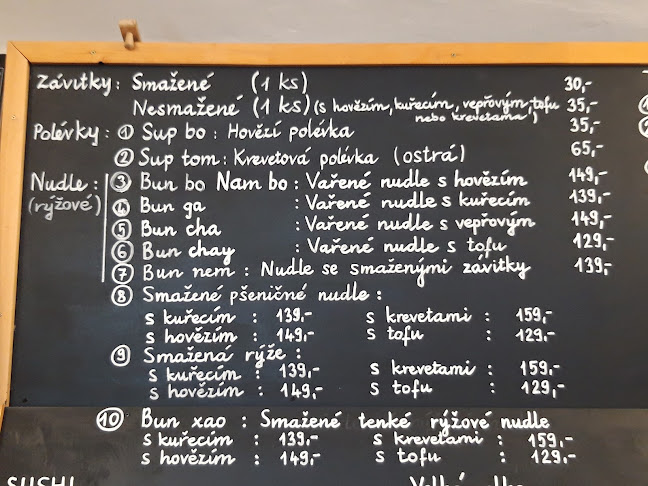 Závitky: Smažené (1 ks) 30,-
Nesmažené (1 ks) (s hovězím, kuřecím, vepřovým, tofu 35,-
nebo krevetama)
Polévky: 1 Sup bo: Hovězí polévka 35,-
2 Sup tom: Krevetová polévka (ostrá) 65,-
Nudle: 3 Bun bo Nam bo: Vařené nudle s hovězím 149,-
(rýžové) 4 Bun ga : Vařené nudle s kuřecím 139,-
5 Bun cha : Vařené nudle s vepřovým 149,-
6 Bun chay : Vařené nudle s tofu 129,-
7 Bun nem : Nudle se smaženými závitky 139,-
8 Smažené pšeničné nudle :
s kuřecím : 139,- s krevetami : 159,-
s hovězím : 149,- s tofu : 129,-
9 Smažená rýže :
s kuřecím : 139,- s krevetami : 159,-
s hovězím : 149,- s tofu : 129,-
10 Bun xao : Smažené tenké rýžové nudle
s kuřecím : 139,- s krevetami : 159,-
s hovězím : 149,- s tofu : 129,-
SUSHI